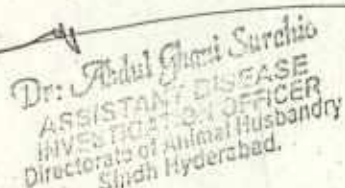 Dr: Abdul Ghani Surchio
ASSISTANT DISEASE
INVESTIGATION OFFICER
Directorate of Animal Husbandry
Sindh Hyderabad.